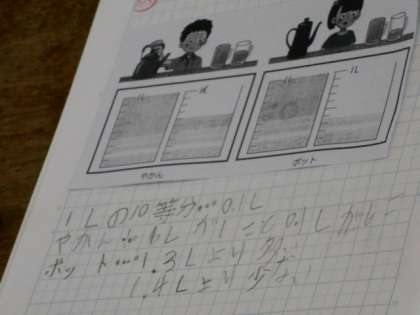 1L 1L
1L 1L
やかん ポット
1Lの10等分…0.1L
やかん 1L が1こと0.1L が こ
ポット…1.3Lより多い
1.4Lより少ない